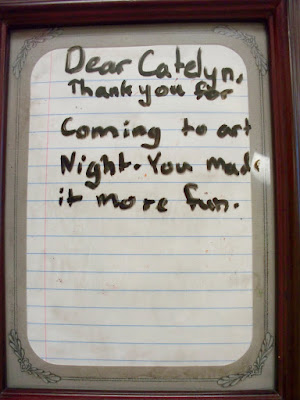 Dear Catelyn,
Thank you for
Coming to art
Night. You made
it more fun.